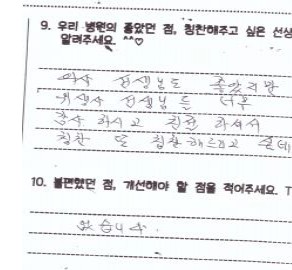 9. 우리 병원의 좋았던 점, 칭찬해주고 싶은 선생
알려주세요. ^^♡
의사 선생님도 좋았지만
위생사 선생님들 너무
감사하시고 친절하셔서
칭찬 또 칭찬해드리고 싶네
10. 불편했던 점, 개선해야 할 점을 적어주세요. T
없습니다.